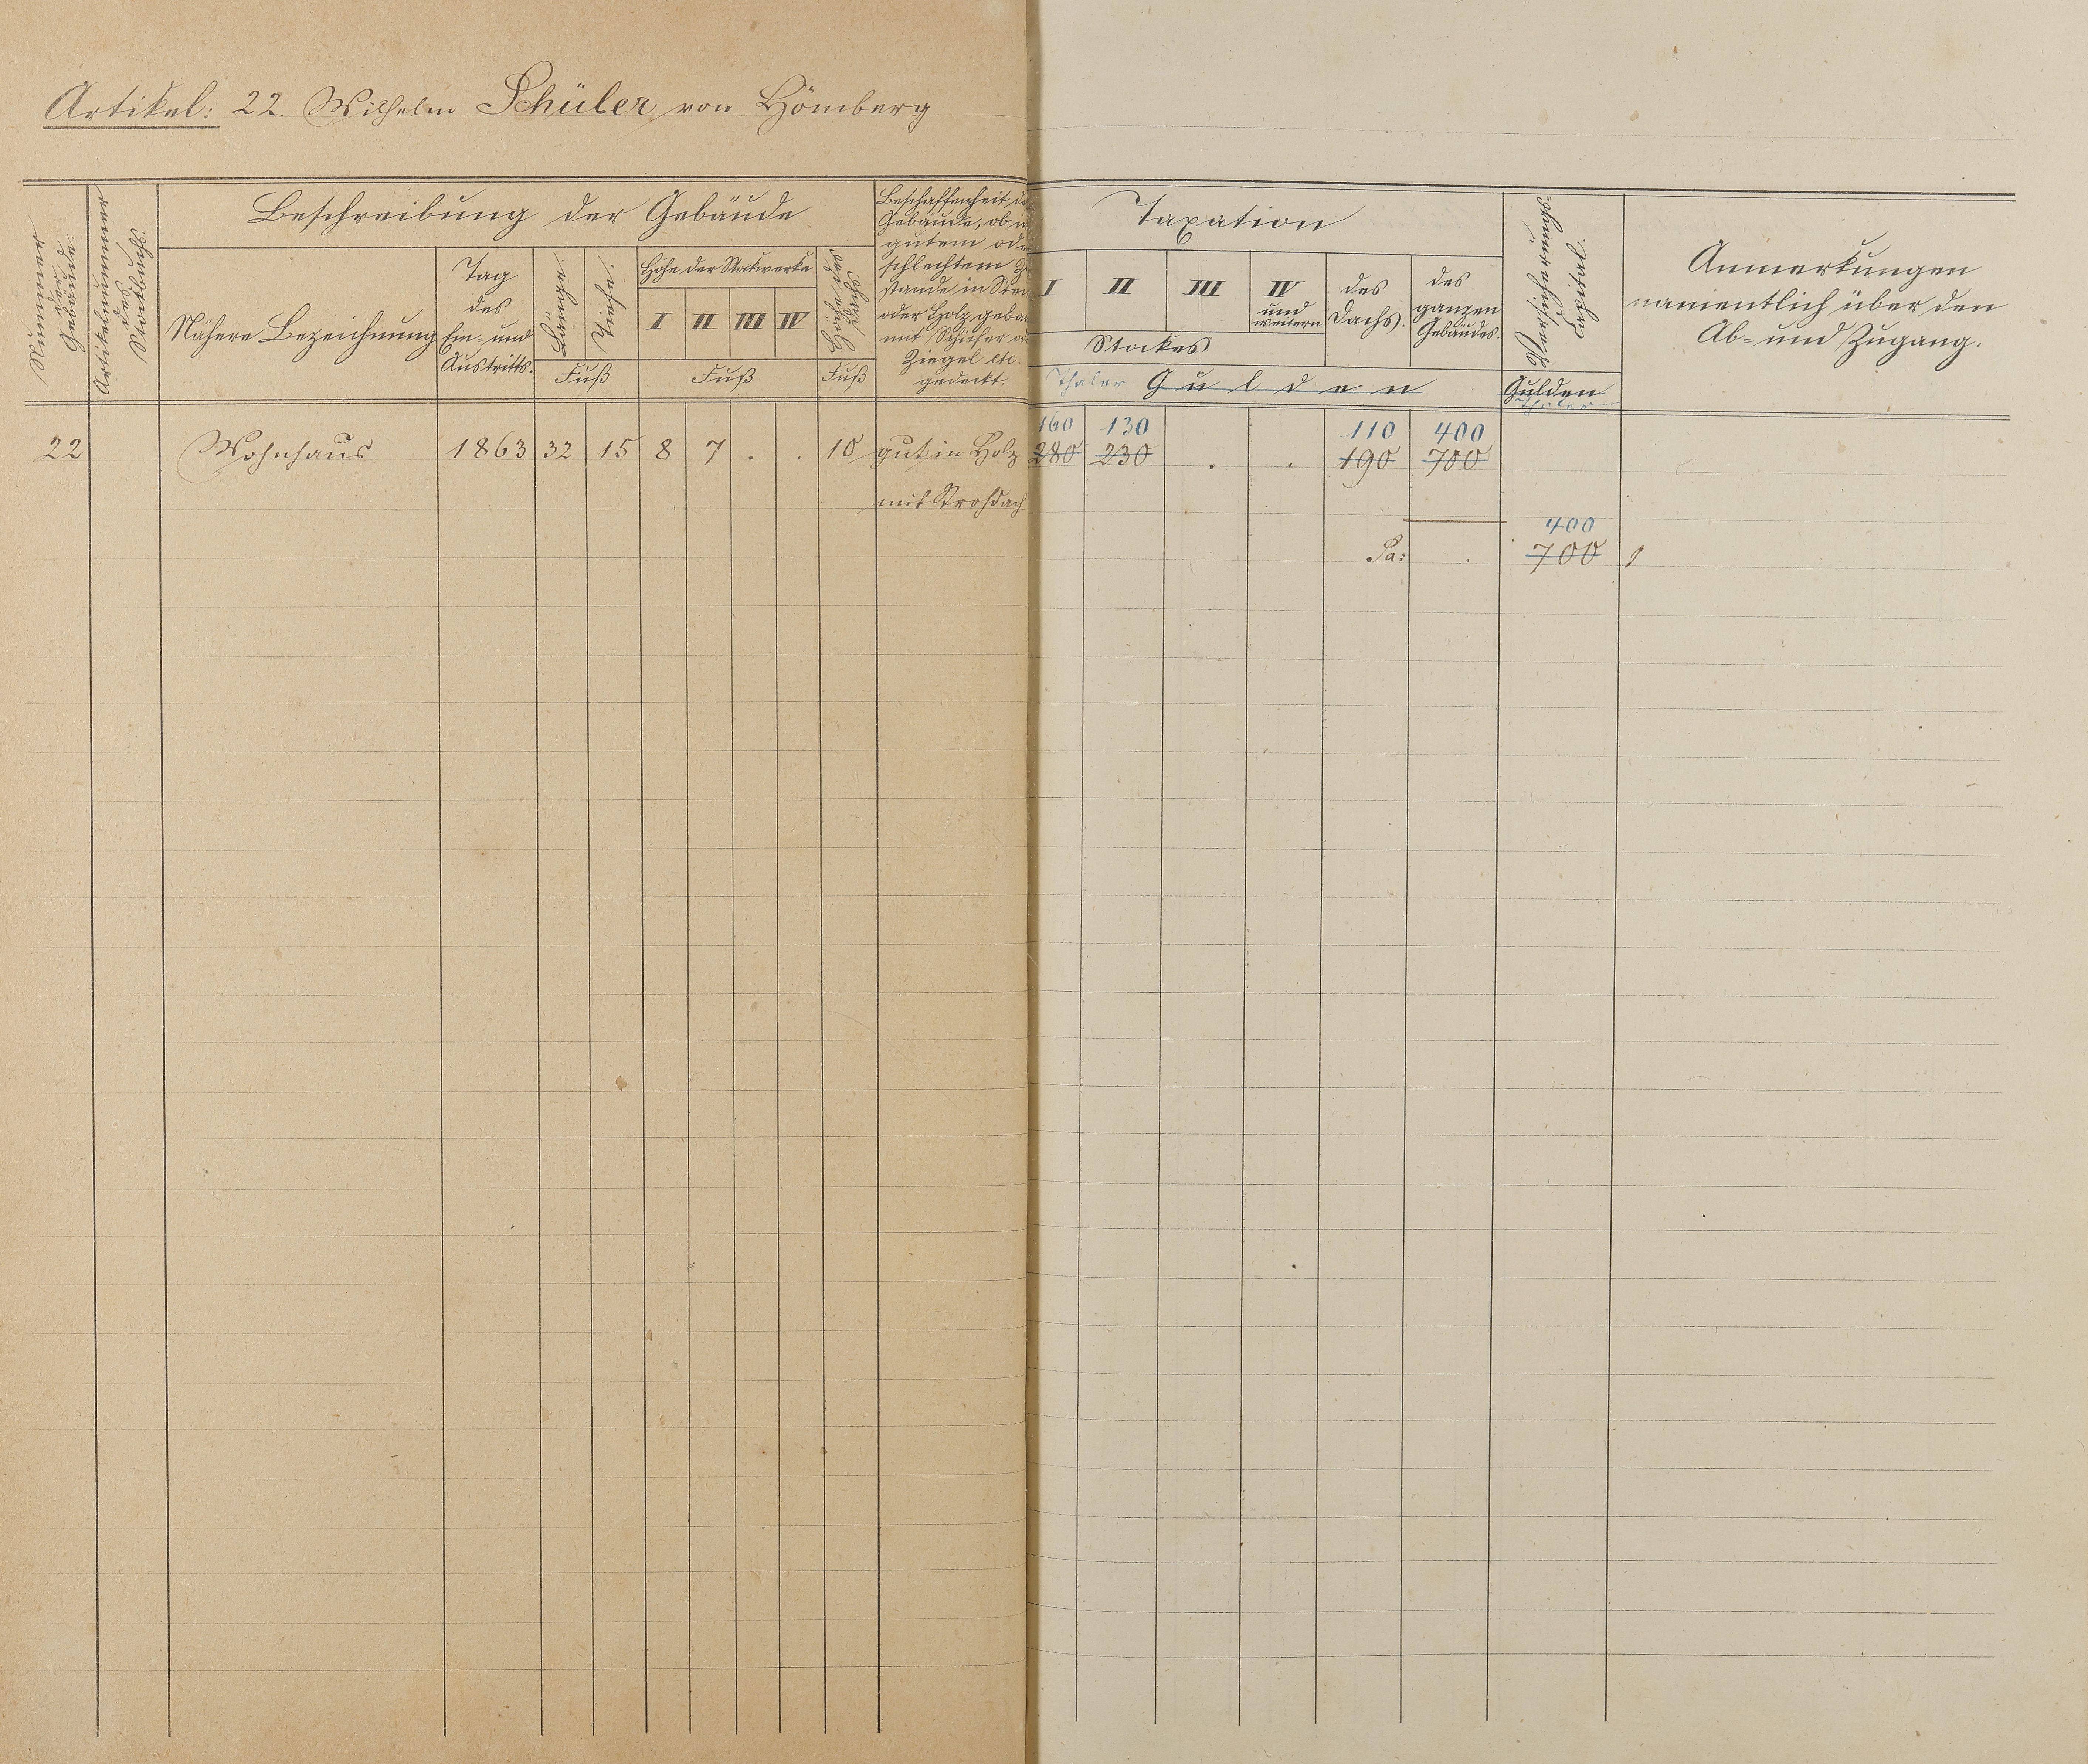 Artikel: 22. Wilhelm Schüler von Hömberg
Nummer
der
Gebäude.
Artikelnummer
des
Stockbuchs.
Beschreibung der Gebäude
Nähere Bezeichnung
Tag
des
Ein- und
Austritts.
Länge.
Tiefe.
Fuß
Höhe der Stokwerke
I II III IV
Fuß
Höhe des
Dachs
Fuß
Beschaffenheit de
Gebäude, ob in
gutem ode
schlechtem Z
stande in Stei
oder Holz geba
mit Schiefer o
Ziegel etc.
gedeckt.
Taxation
I II III IV
und
weitern
Stockes
des
Dachs.
des
ganzen
Gebäudes.
Thaler Gulden
Versicherungs
Capital.
Gulden
Thaler
Anmerkungen
namentlich über den
Ab- und Zugang.
160 130 110 400
22 Wohnhaus 1863 32 15 8 7 . . 10 gut in Holz 280 230 . . 190 700
mit Strohdach
400
Sa: . 700